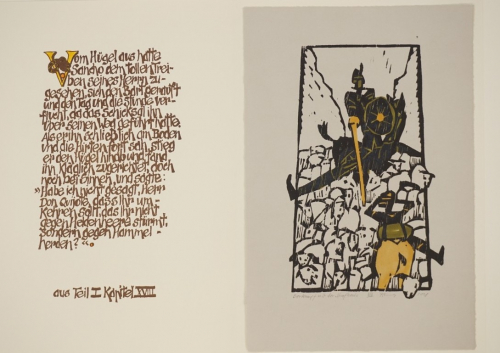 Vom Hügel aus hatte
Sancho dem tollen Trei-
ben seines Herrn zu-
gesehen, sich den Bart gerauft
und den Tag und die Stunde ver-
flucht, da das Schicksal ihn
über seinen Weg geführt hatte.
Als er ihn schließlich am Boden
und die Hirten fort sah, stieg
er den Hügel hinab und fand
ihn kläglich zugerichtet, doch
noch bei Sinnen, und sagte:
"Habe ich nicht gesagt, Herr
Don Quijote, dass Ihr um-
kehren sollt, dass Ihr nicht
gegen Heldenheere stürmt,
sondern gegen Hammel-
herden?"
aus Teil I Kapitel XVIII